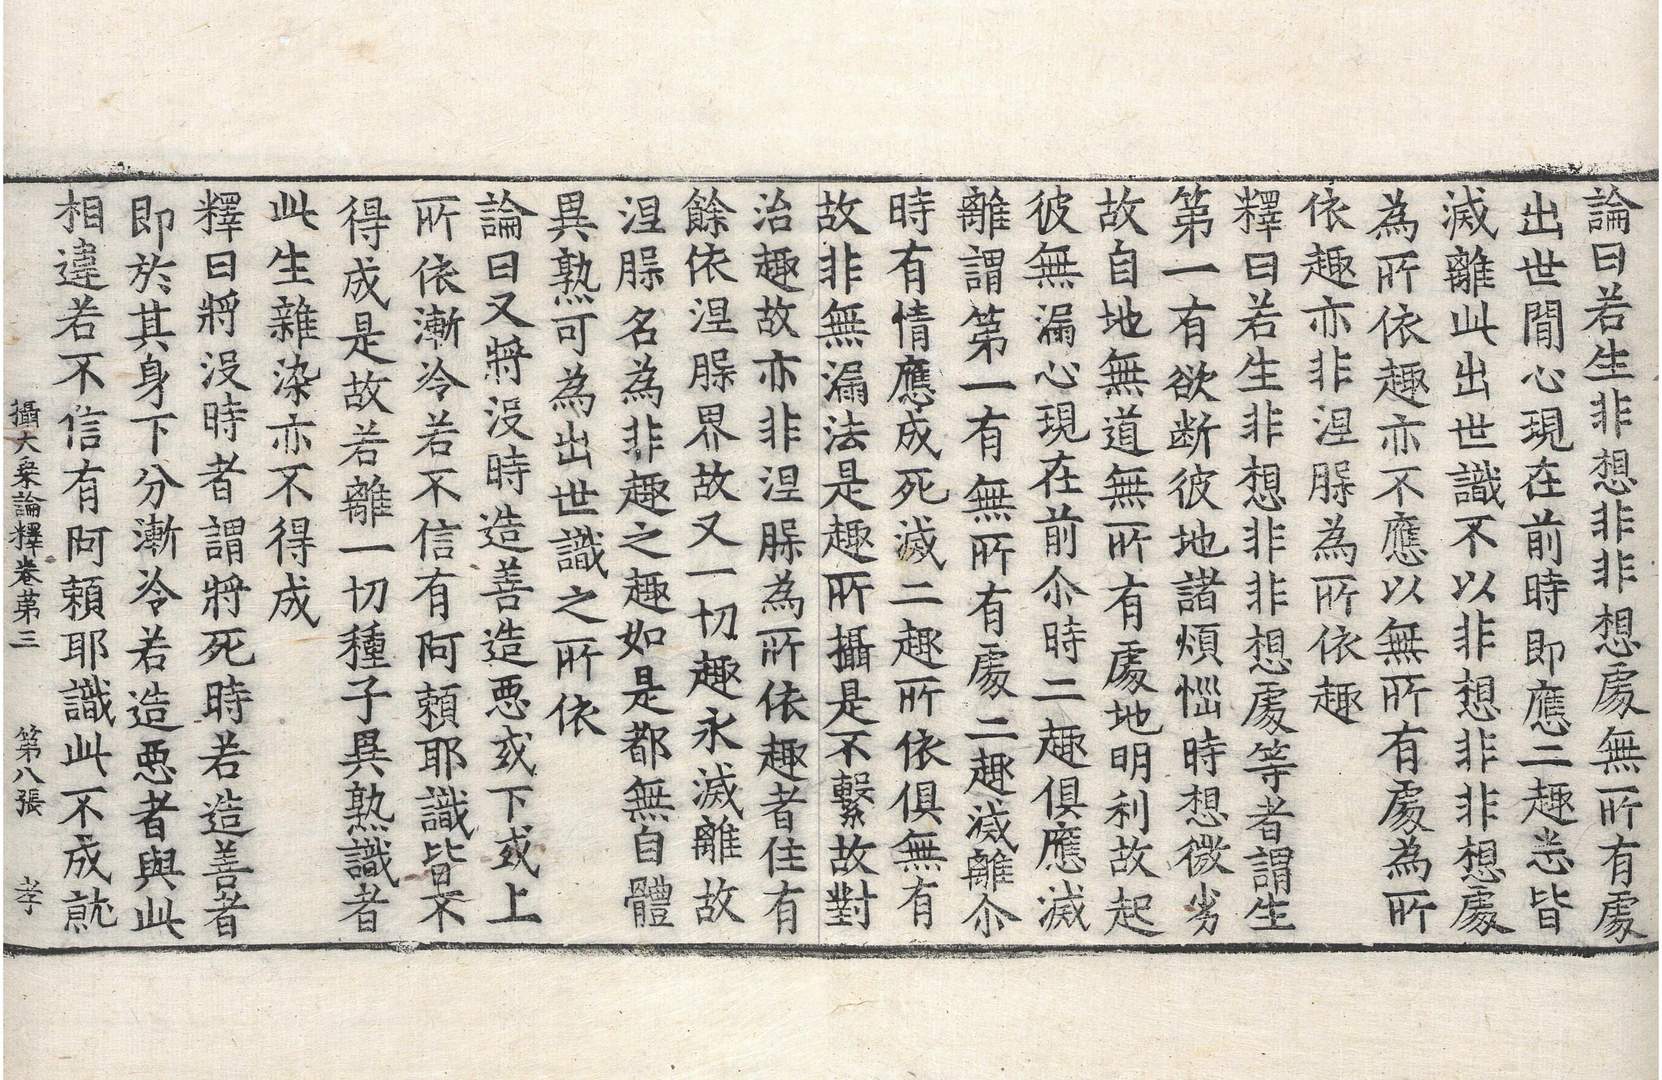 論曰若生非想非非想處無所有處
出世間心現在前時即應二趣悉皆
滅離此出世識不以非想非非想處
為所依趣亦不應以無所有處為所
依趣亦非涅槃為所依趣
釋曰若生非想非非想處等者謂生
第一有欲断彼地諸煩惱時想微劣
故自地無道無所有處地明利故起
彼無漏心現在前尒時二趣俱應滅
離謂第一有無所有處二趣滅離尒
時有情應成死滅二趣所依俱無有
故非無漏法是趣所攝是不繫故對
治趣故亦非涅槃為所依趣者住有
餘依涅槃界故又一切趣永滅離故
涅槃名為非趣之趣如是都無自體
異熟可為出世識之所依
論曰又將没時造善造惡或下或上
所依漸冷若不信有阿賴耶識皆不
得成是故若離一切種子異熟識者
此生雜染亦不得成
釋曰將没時者謂將死時若造善者
即於其身下分漸冷若造惡者與此
相違若不信有阿賴耶識此不成就
攝大乘論釋卷第三 第八張 孝